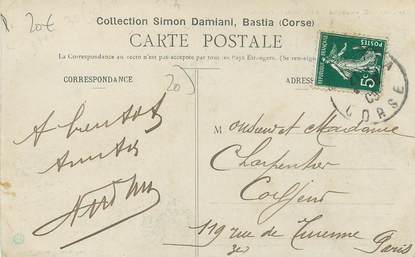 20€
Collection Simon Damiani, Bastia (Corse)
CARTE POSTALE
La Correspondance au recto n'est pas acceptée par tous les Pays Etrangers. (Se renseign
CORRESPONDANCE
ADRES
20
POSTES
5c
CORSE
A bientôt
Amitiés
Monsieur et Madame
Charpentier
Coiffeur
119 rue de Turenne
3e
Paris